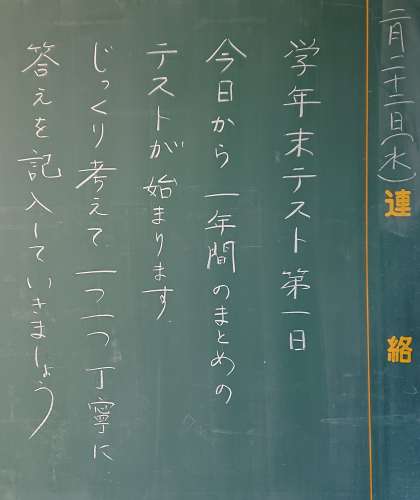 二月二十二日(水)
連絡
学年末テスト第一日
今日から一年間のまとめの
テストが始まります.
じっくり考えて一つ一つ丁寧に
答えを記入していきましょう